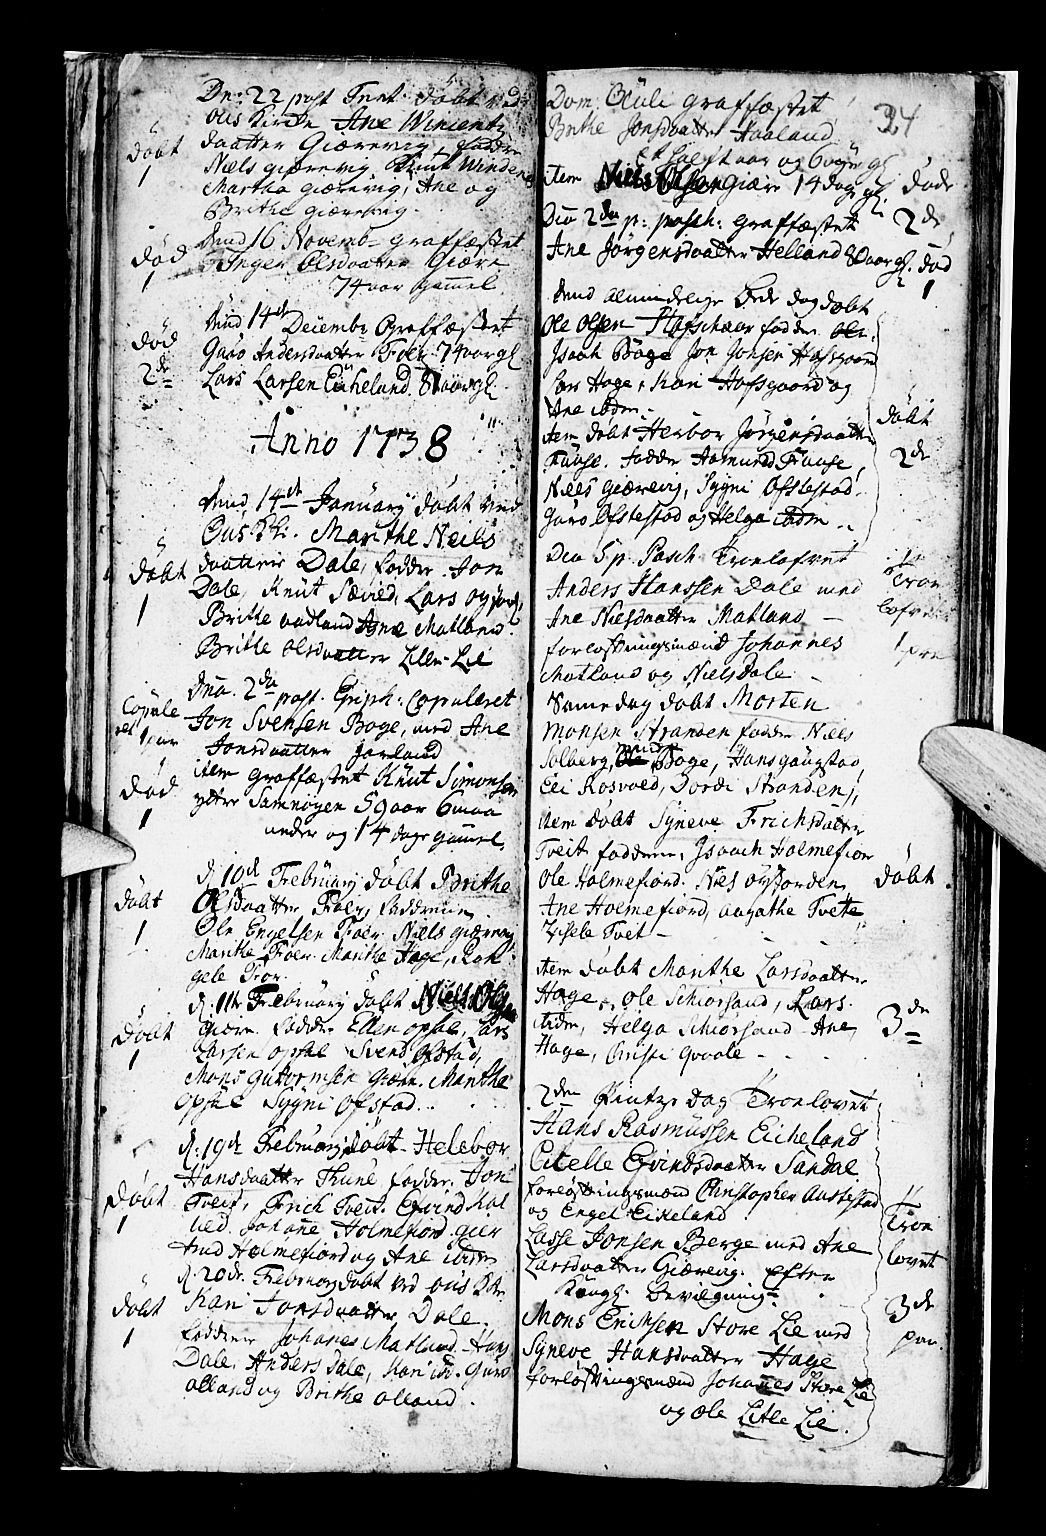 Dn: 22 post Trnt. døbt ved
Ous Kirke Ane Wincentz
daatter Giærevig, fadder
Niels giærevig, Knut Winden
Martha giærevig, Ane og
Brithe giærevig.
døbt
1
dend 16 Novemb. Graffæstet
Inger Olsdaatter Giære
74 aar gamel
død
1
dend 14de Decembr Graffæstet
Guro Andersdaatter Foer 74 aar gl
Lars Larsen Eikeland 8 aar gl.
død
2de
Anno 1738
dend 14de January døbt ved
Ous Kki. Marithe Neils
daatter Dale, fadder Jon
Dale, Knut Sævied, Lars og
Brithe aadland Ane Matland.
Brithe Olsdaatter Lille-Lie
døbt
1
Dna. 2da post. Epiph: Copuleret
Jon Svensen Boge, med Ane
Jonsdaatter Jarland
Copule
ret 1 par
item graffæstet Knut Simonsen
yttre Samnøyen 59 aar 6 maa
neder og 14 dage gamel
død
1
d. 10de February døbt Brithe
Olsdaatter Foer, fadderne
Ole Engelsen Foer. Niels giærevig
Marithe Foer. Marithe Hage, Ron
gele For.
døbt
1
d. 11te February døbt Niels Olsen
Giære. fadder Ellen opsal, Lars
Larsen opsal Svend Ofstad,
Mons Gutormsen Giære. Marithe
Opsal Sygni Ofstad.
døbt
1
d. 19de February døbt Heleber
Hansdaatter Thune fadder. Jon
Tveit, Erich Tveit. Eivind Kal
ved. Johane Holmefiord. gier
trud Holmefiord og Ane ibidm
døbt
1
d. 20de February døbt ved ous Kkr.
Kari Jonsdaatter Dale.
fadderne Johanes Matland. Hans
Dale, Anders Dale, Kari ibd. Guro
olland og Brithe olland.
døbt
1
34
Dom. Culi graffæstet
Brithe Jonsdaatter Haaland
et halft aar og 6 ugr gl
item Niels Olsen Giære 14 dag gl.
døde
2de
Dna 2da p: pasch: graffæstet
Ane Jørgensdaatter Helland 80 aar gl.
død
1
dend almindelige Bededag døbt
Ole Olsen Hafschaar fadder
Isaach Boge Jon Jonsen Hafsgaard
Lars Hage, Kari Hafsgaard og
Ane ibdm.
item døbt Herbor Jørgensdaatter
Hauge. fadder Aamund Hauge,
Niels giærevig, Sygni Ofstestad.
Guro Ofstestad og Helga ibdm
døbt
2de
Dca 5 p. Pasch Troelofvet
Anders Hanssen Dale med
Ane Nielsdaatter Matland
forlofningsmænd Johannes
Matland og Niels Dale
Troe
lofvet
1 par
Samedag døbt Morten
Monsen Stranden fadder Niels
Solberg, Boge, Hans gaugstad,
Eli Rosvold, Dordi Stranden,
item døbt Syneve Erichsdatter
Tveit fadderne, Isaach Holmefior
Ole Holmefiord. Niels og Jorden
Ane Holmefiord, aagathe Tvete
Zisele Tvet
døbt
item døbt Marithe Larsdaatter
Hage, Ole Schiørsand, Lars
ibdm, Helga Schiørsand Ane
Hage, Christi qvaale
3de
2den Pintze Dag Troelovet
Hans Rasmussen Eicheland
Citelle Eivindsdaatter Sandal
forløftningsmænd Christopher Austestad
og Engel Eikeland
Lasse Jonsen Berge med Ane
Larsdaatter Giærevig. Efter
Kongl: bevilgning.
Mons Erichsen Store Lie med
Syneve Hansdaatter Hage
forløftningsmænd Johannes Store Lie
og Ole Litle Lie.
Troe
lovet
3de
par.